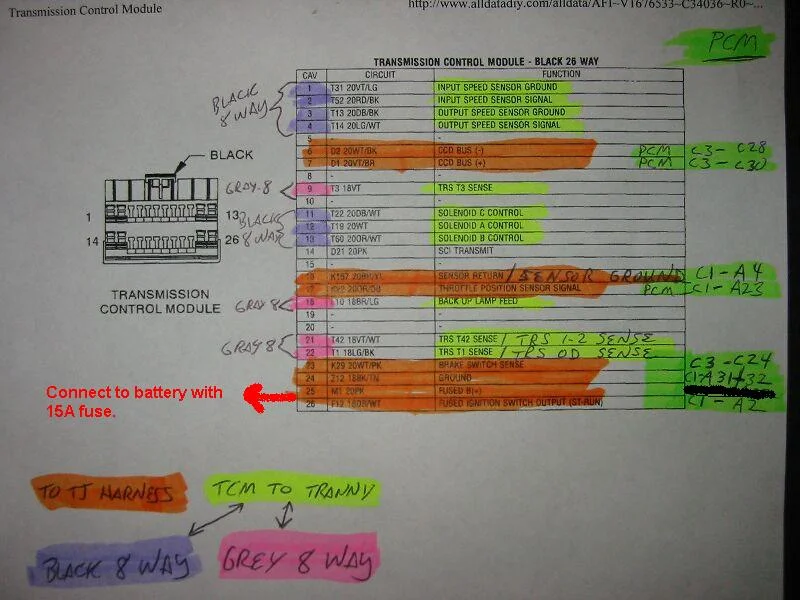 Transmission Control Module
http://www.alldatadiy.com/alldata/AFI~V1676533~C34036~R0~...
PCM
TRANSMISSION CONTROL MODULE - BLACK 26 WAY
CAV CIRCUIT FUNCTION
1 T31 20VT/LG INPUT SPEED SENSOR GROUND
2 T52 20RD/BK INPUT SPEED SENSOR SIGNAL
3 T13 20DB/BK OUTPUT SPEED SENSOR GROUND
4 T14 20LG/WT OUTPUT SPEED SENSOR SIGNAL
BLACK
8 WAY
5 - -
6 D2 20WT/BK CCD BUS (-) PCM C3 - C28
7 D1 20VT/BR CCD BUS (+) PCM C3 - C30
8 - -
GRAY-8 9 T3 18VT TRS T3 SENSE
10 - -
11 T22 20DB/WT SOLENOID C CONTROL
12 T19 20WT SOLENOID A CONTROL
13 T60 20OR/WT SOLENOID B CONTROL
BLACK
8 WAY
14 D21 20PK SCI TRANSMIT
15 - -
16 SENSOR RETURN / SENSOR GROUND C1-A4
17 THROTTLE POSITION SENSOR SIGNAL PCM C1-A23
GRAY 8 18 T10 18BR/LG BACK UP LAMP FEED
19 - -
20 - -
21 T42 18VT/WT TRS T42 SENSE / TRS 1-2 SENSE
22 T1 18LG/BK TRS T1 SENSE / TRS OD SENSE
GRAY 8
23 K29 20WT/PK BRAKE SWITCH SENSE C3-C24
24 Z12 18BK/TN GROUND C1-A31+32
25 M1 20PK FUSED B(+)
26 F12 18DB/WT FUSED IGNITION SWITCH OUTPUT (ST-RUN) C1-A2
BLACK
1 13
14 26
TRANSMISSION
CONTROL MODULE
Connect to battery with
15A fuse.
TO TJ HARNESS
TCM TO TRANNY
BLACK 8 WAY
GREY 8 WAY